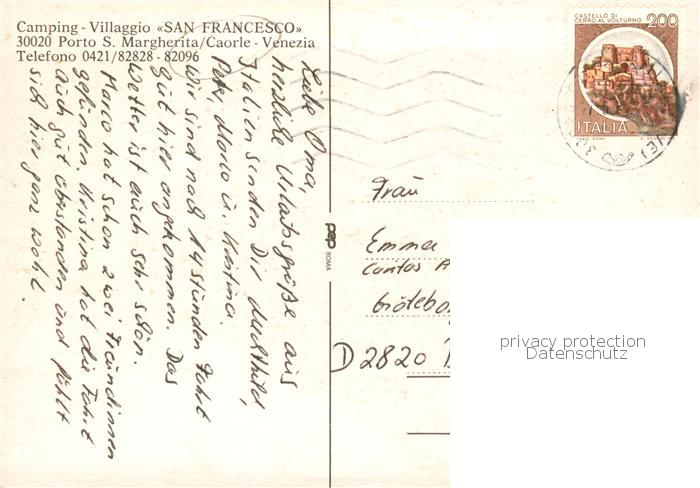 Camping - Villaggio «SAN FRANCESCO»
30020 Porto S. Margherita/Caorle - Venezia
Telefono 0421/82828 - 82096
Liebe Oma,
herzliche Urlaubsgrüße aus
Italien senden Dir Mechthild,
Peter, Marco u. Kristina.
Wir sind nach 14 stunden Fahrt
gut hier angekommen. Das
Wetter ist auch sehr schön.
Marco hat schon zwei Freundinnen
gefunden. Kristina hat die Fahrt
auch gut überstanden und fühlt
sich hier ganz wohl.
CASTELLO DI
CERRO AL VOLTURNO
200
ITALIA
pep
ROMA
Frau
Emma
Göteborg
D 2820
privacy protection
Datenschutz